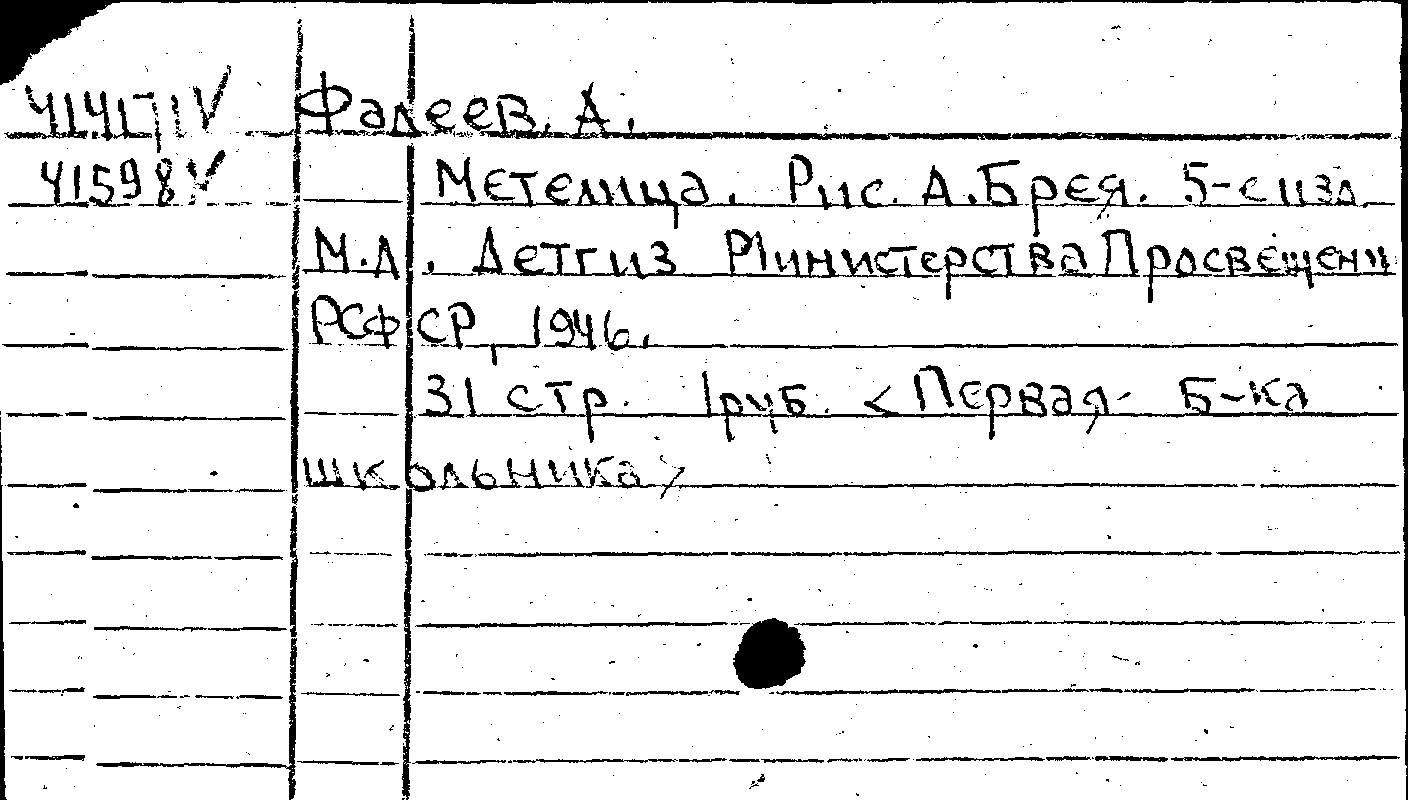 41417 V Фадеев. А.
41598 V Метелица. Рис. А.Брея. 5-е изд.
М.Л. Детгиз Министерства Просвещени
РСФСР, 1946.
31 стр. 1 руб. <Первая б-ка
школьника>